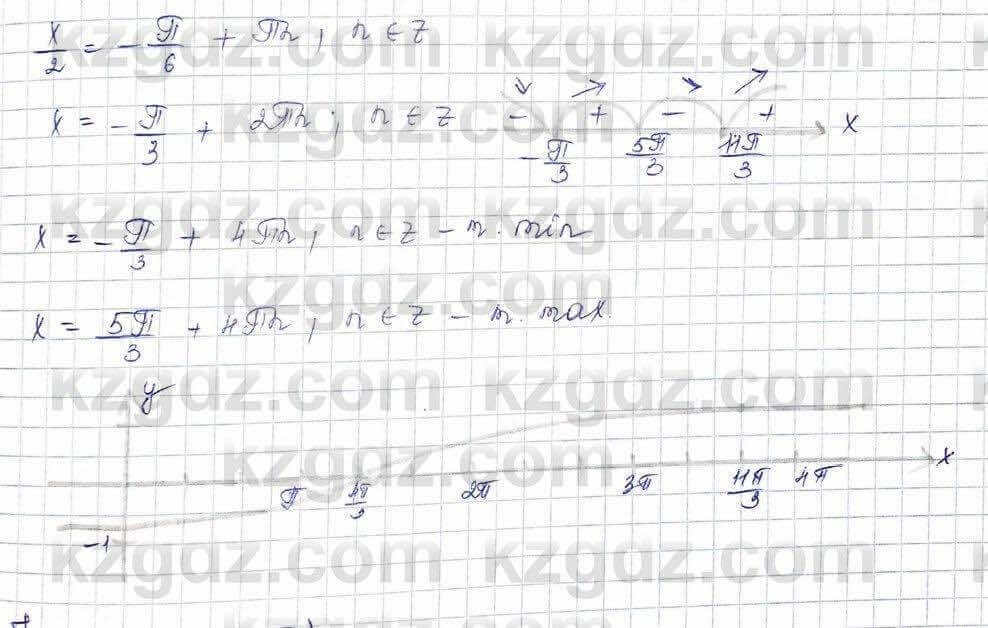 x/2 = -π/6 + πn, n ∈ z
x = -π/3 + 2πn; n ∈ z
- + - + x
-π/3 5π/3 11π/3
x = -π/3 + 4πn, n ∈ z - т. min
x = 5π/3 + 4πn, n ∈ z - т. max.
y
x
π 4π/3 2π 3π 11π/3 4π
-1
kzgdz.com kzgdz.com
kzgdz.com
kzgdz.com kzgdz.com
kzgdz.com
kzgdz.com kzgdz.com
kzgdz.com
kzgdz.com kzgdz.com